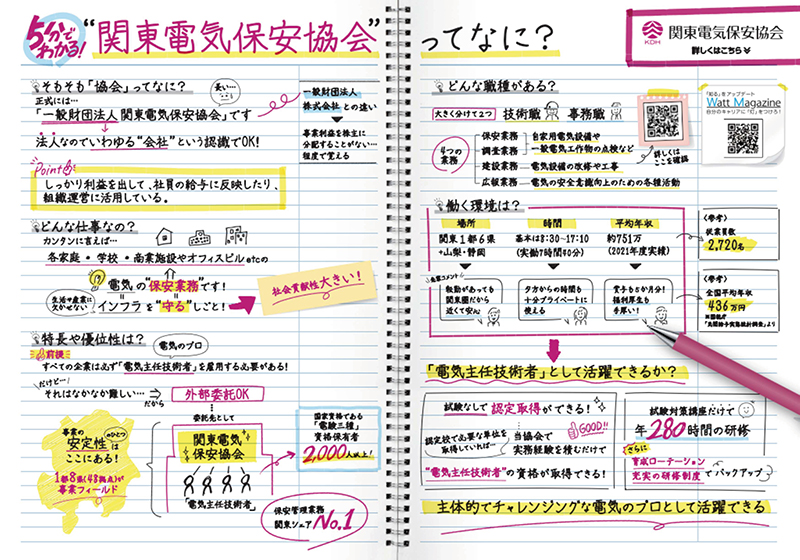 5分でわかる!
“関東電気保安協会”ってなに?
KDH
関東電気保安協会
詳しくはこちら
そもそも「協会」ってなに?
正式には…
長い…
「一般財団法人 関東電気保安協会」です
法人なのでいわゆる“会社”という認識でOK!
一般財団法人
株式会社 との違い
事業利益を株主に
分配することがない…
程度で覚える
Point
しっかり利益を出して、社員の給与に反映したり、
組織運営に活用している。
どんな仕事なの?
カンタンに言えば…
各家庭・学校・商業施設やオフィスビルetcの
電気の“保安業務”です!
生活や産業に
欠かせない
インフラを“守る”しごと!
社会貢献性大きい!
特長や優位性は?
電気のプロ
前提
すべての企業は必ず「電気主任技術者」を雇用する必要がある!
だけど…
それはなかなか難しい…
だから
外部委託OK
委託先として
関東電気
保安協会
「電気主任技術者」
事業の
安定性のひとつは
ここにある!
1都8県(48拠点)が
事業フィールド
国家資格である
「電験三種」
資格保有者
2,000人以上!
保安管理業務
関東シェアNo.1
どんな職種がある?
大きく分けて2つ
技術職
事務職
4つの
業務
保安業務
調査業務
自家用電気設備や
一般電気工作物の点検など
建設業務
電気設備の改修や工事
広報業務
電気の安全意識向上のための各種活動
詳しくは
ここを確認
「知る」をアップデート
Watt Magazine
自分のキャリアに“灯”をつけろ!
働く環境は?
場所
関東1都6県
+山梨・静岡
時間
基本は8:30~17:10
(実働7時間40分)
平均年収
約751万
(2021年度実績)
転勤があっても
関東圏だから
近くて安心
夕方からの時間も
十分プライベートに
使える
賞与も5か月分!
福利厚生も
手厚い!
(参考)
従業員数
2,720名
(参考)
全国平均年収
436万円
「電気主任技術者」として活躍できるか?
試験なしで認定取得ができる!
認定校で必要な単位を
取得していれば…
当協会で
実務経験を積むだけで
GOOD!!
“電気主任技術者”の資格が取得できる!
試験対策講座だけで
年280時間の研修
さらに
育成ローテーション
充実の研修制度でバックアップ
主体的でチャレンジングな電気のプロとして活躍できる